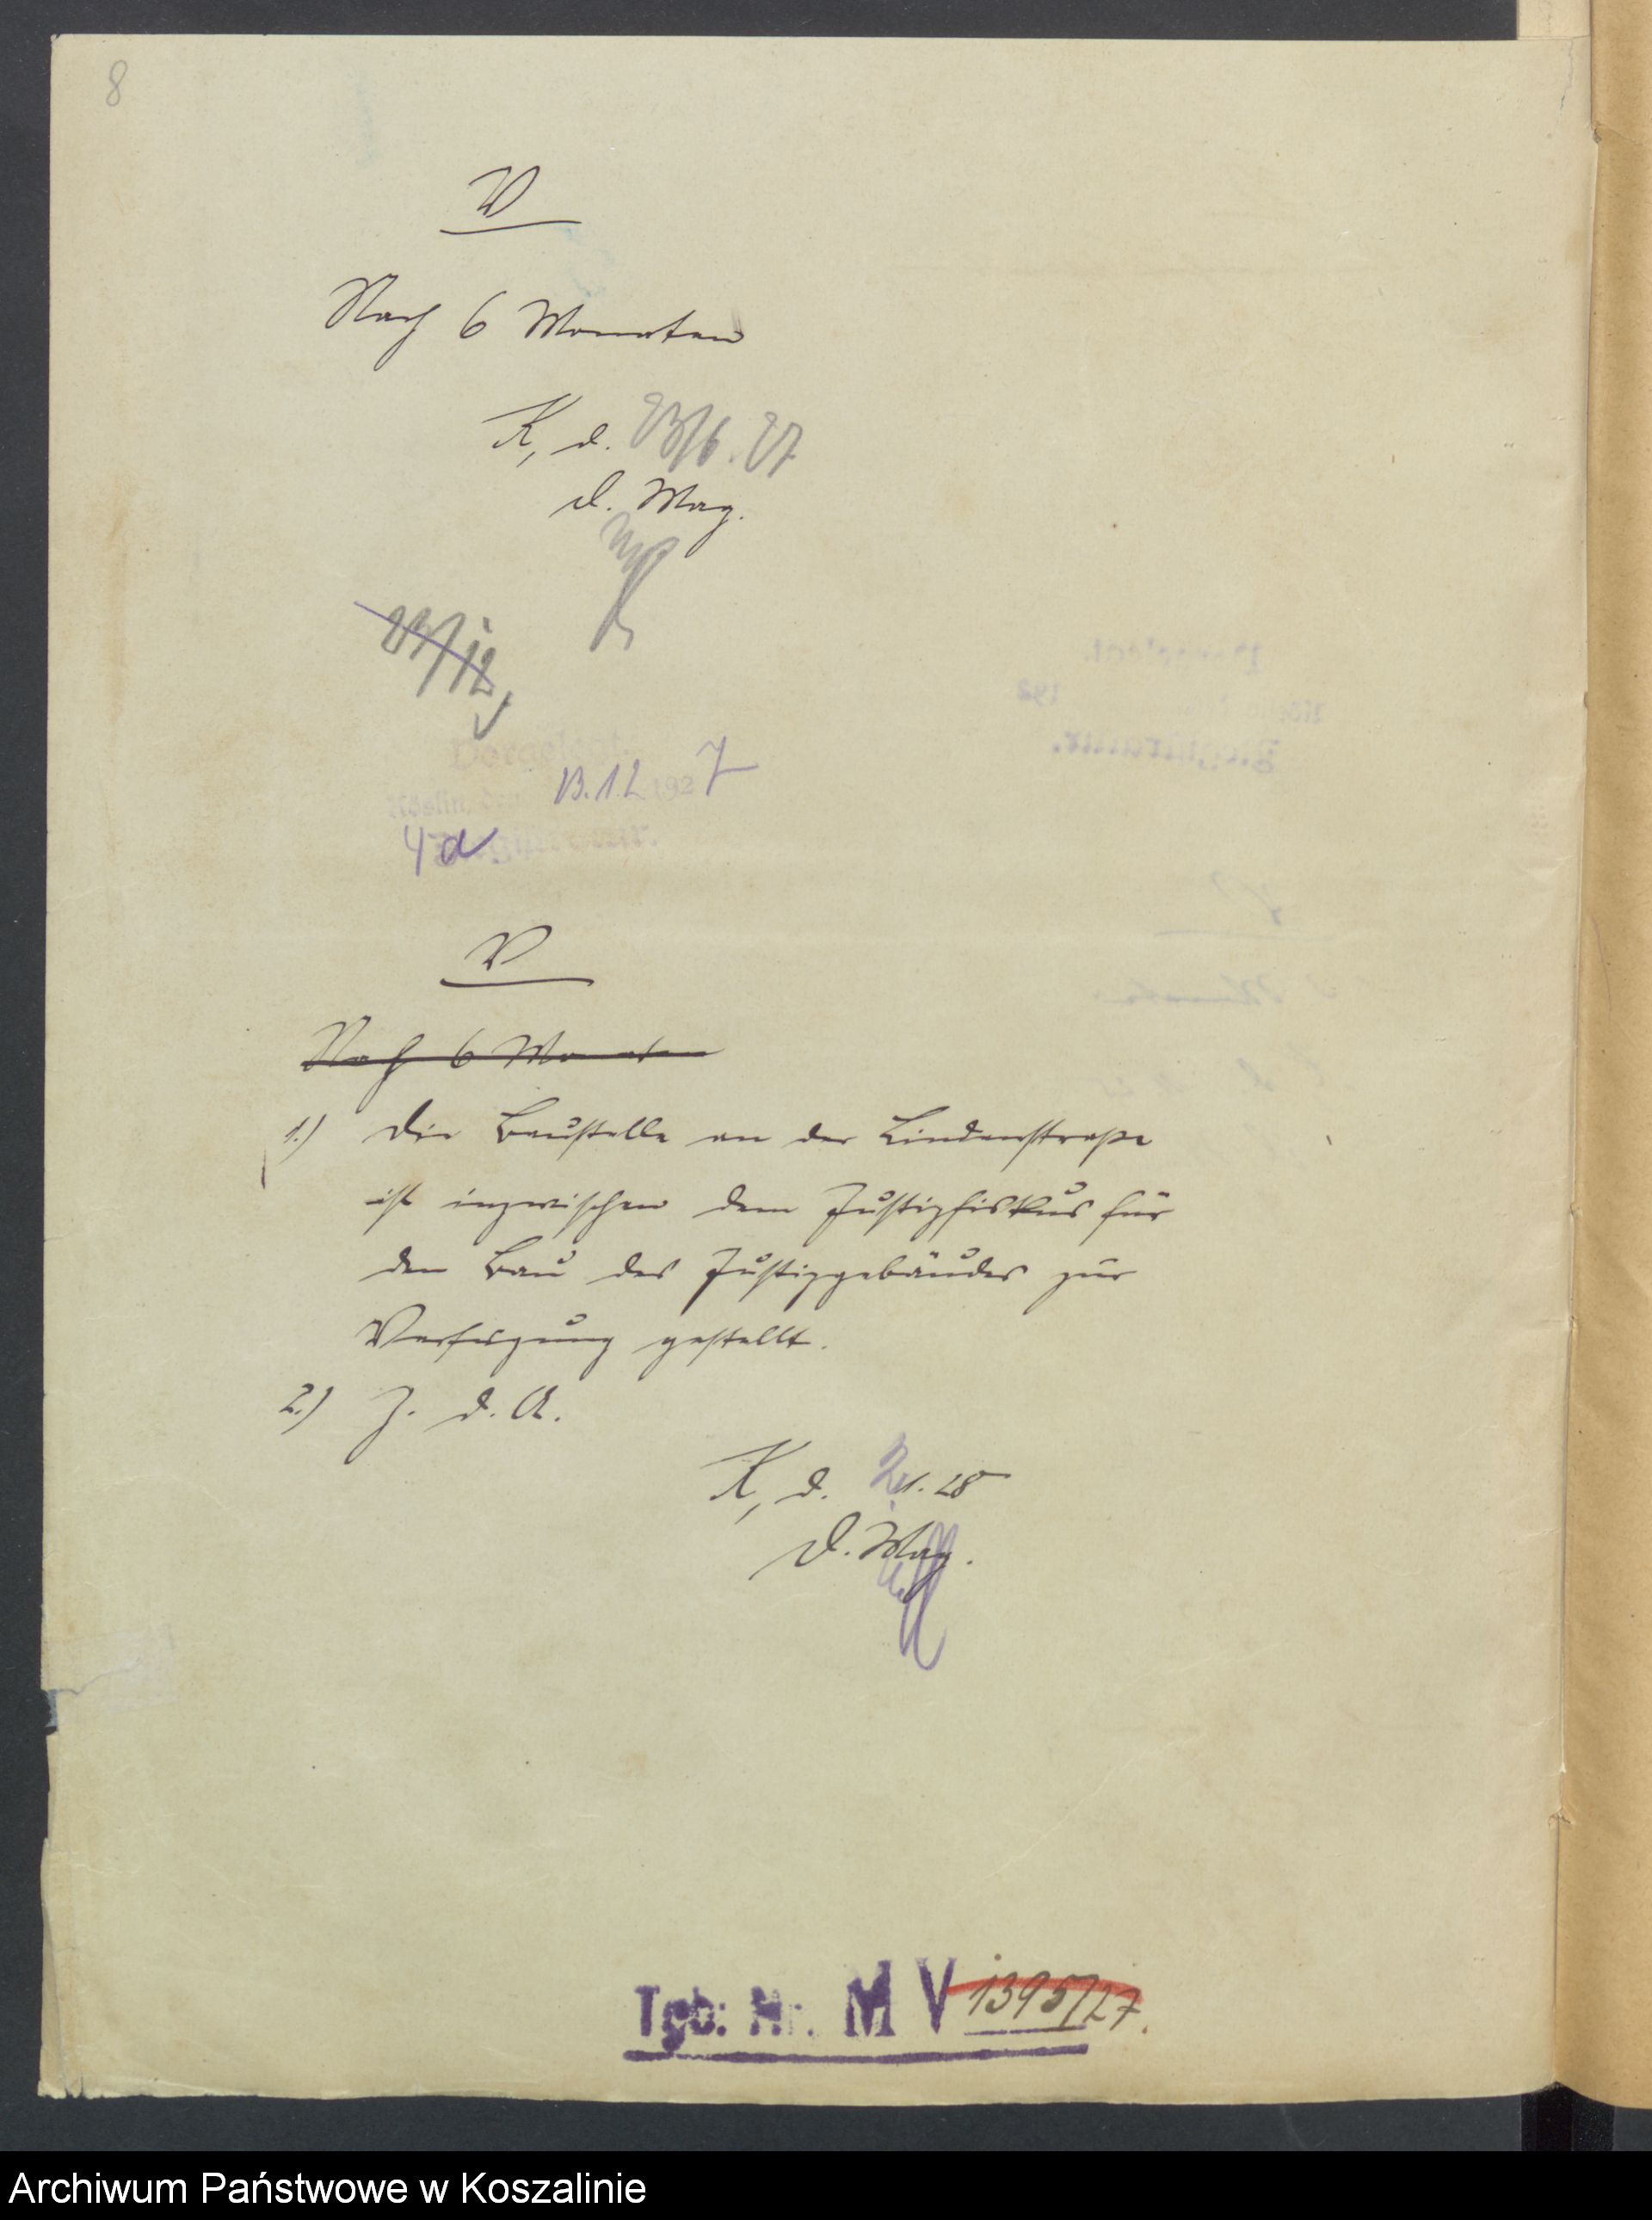 8
V
Nach 6 Monaten
K, d. 23/6. 27
D. Mag.
23/12
Vorgelegt.
Köslin, den 13.12 1927
Registratur.
V
Nach 6 Monaten
1.) Die Baustelle an der Lindenstraße
ist inzwischen dem Justizfiskus für
den Bau des Justizgebäudes zur
Verfügung gestellt.
2.) Z. d. A.
K, d. 2.1.28
D. Mag.
Tgb: Nr. M V 1395/27.
Archiwum Państwowe w Koszalinie